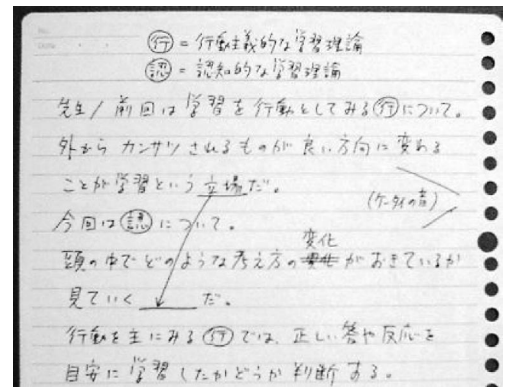 ㋻ = 行動主義的な学習理論
㋥ = 認知的な学習理論
先生/前回は学習を行動としてみる行について。
外から カンサツ されるものが良い方向に変わる
ことが学習という立場だ。
(ケータイの音)
今回は認について。
変化
頭の中でどのような考え方の変化がおきているか
見ていく だ。
行動を主にみる行では、正しい答や反応を
目安に学習したかどうか判断する。